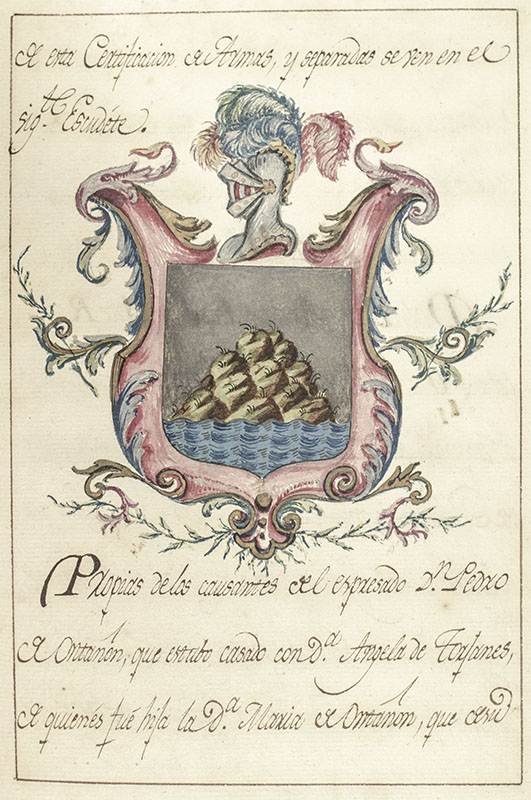 de esta Certificacion de Armas, y separadas se ven en el
sig.te Escudete.
Propias de los causantes del expresado D.n Pedro
de Ontañon, que estubo casado con D.a Angela de
de quienes fué hija la D.a Maria de Ontañon, que